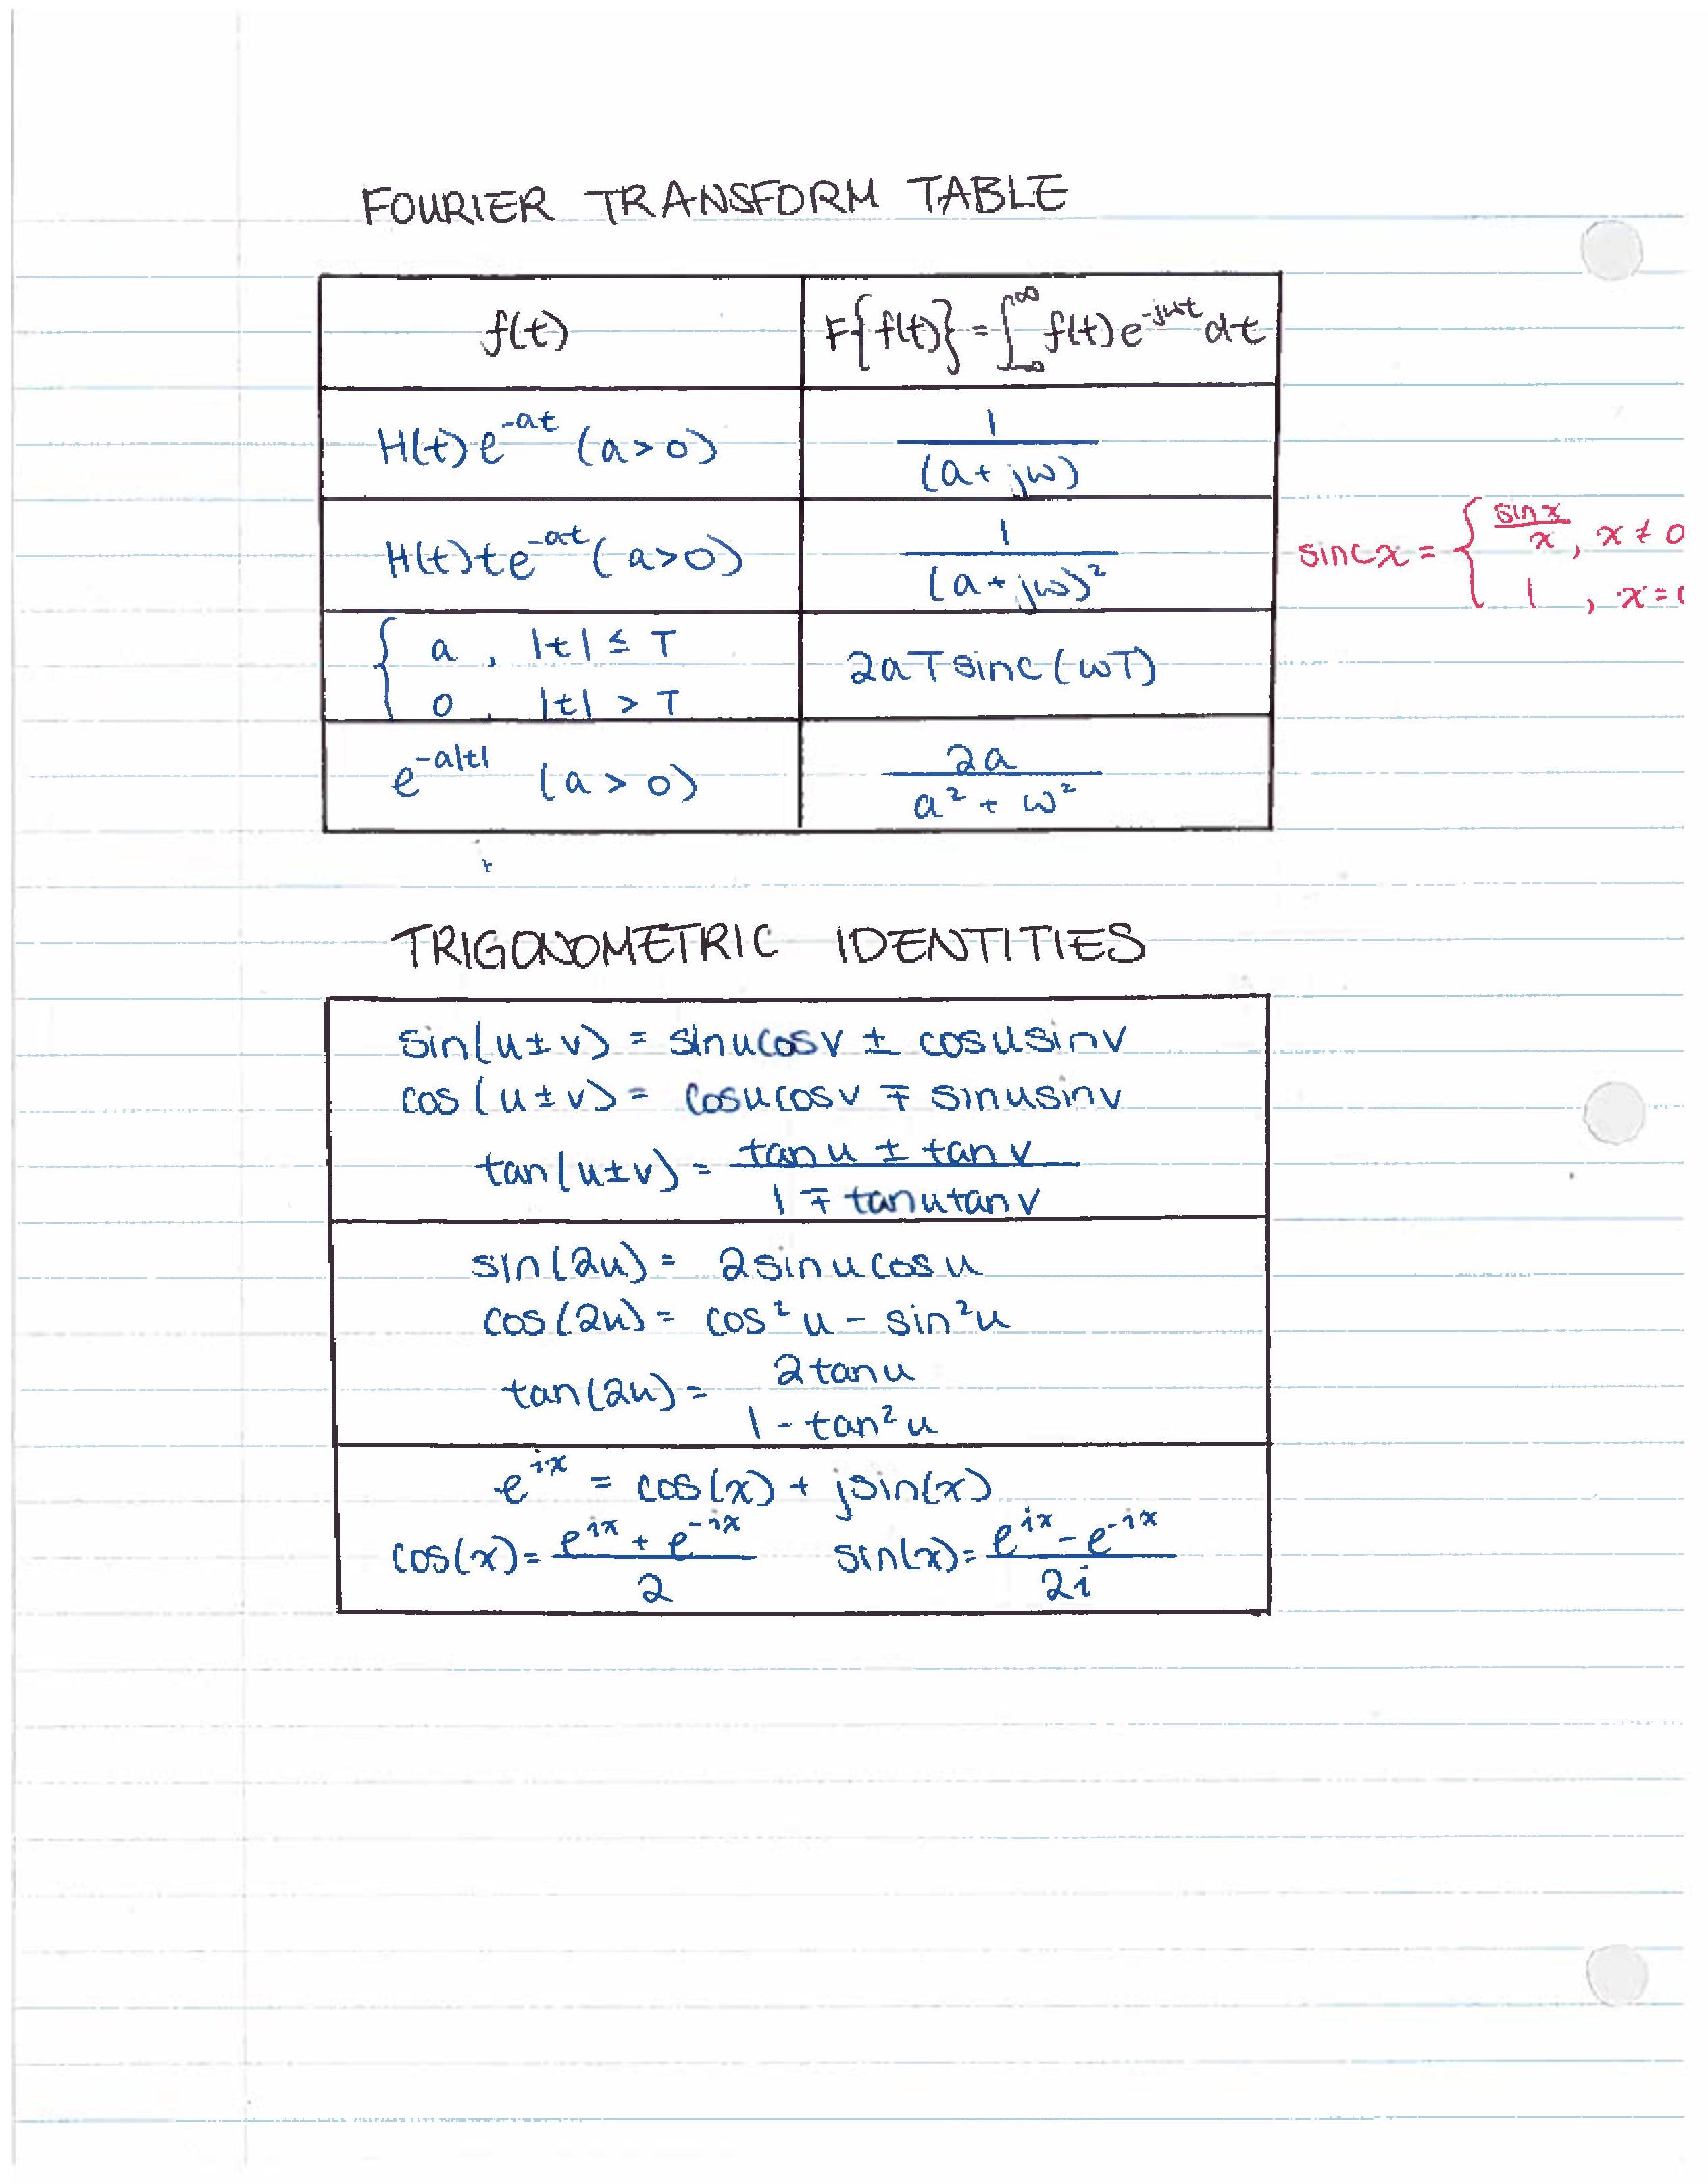 FOURIER TRANSFORM TABLE
f(t)
F{f(t)} = ∫_{-∞}^{∞} f(t) e^{-jωt} dt
H(t) e^{-at} (a > 0)
1
(a + jω)
H(t) t e^{-at} (a > 0)
1
(a + jω)²
sinc x = { sin x / x, x ≠ 0
1 , x =
{ a , |t| ≤ T
0 , |t| > T
2aT sinc(ωT)
e^{-a|t|} (a > 0)
2a
a² + ω²
TRIGONOMETRIC IDENTITIES
sin(u ± v) = sinucosv ± cosusinv
cos(u ± v) = cosucosv ∓ sinusinv
tan(u ± v) = tan u ± tan v
1 ∓ tanutanv
sin(2u) = 2sinucosu
cos(2u) = cos²u - sin²u
tan(2u) = 2tanu
1 - tan²u
e^{ix} = cos(x) + jsin(x)
cos(x) = e^{ix} + e^{-ix}
2
sin(x) = e^{ix} - e^{-ix}
2i